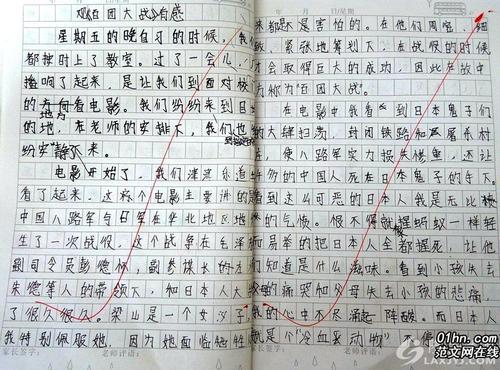 观百团大战有感
星期五的晚自习的时候，我们
都按时上了教室。过了一会儿，
播响了起来，是让我们到面对校
的方向看电影。我们纷纷来到目
地为
的地，在老师的安排下，我们也
纷安静下来。
电影开始了，我们津津乐道
看了起来，这称个电影主要讲的
中国八路军与日军在华北地区
生了一次战役。这个战争在毛泽
副司令员彭德怀，副参谋长的左
朱德等人的带领下，和日本人大
了很久很久。梁山是一个女汉子，
我特别佩服她，因为她面临牺牲
家长签字： 老师评语：
年 月 日/星期
来都不是害怕的。在他们周密、细
致、紧张地筹划下，在战役的时候
才会取得巨大的成功，因此在故中
为称为“百团大战”。
在电影中我看到日本鬼子们
的大肆扫荡，封闭铁路和屠杀村
庄，使八路军实力损失惨重，还让
的中国人死在日本鬼子的手下，
看到这么可恶的日本人我是无比
的气愤。恨不得就捏蚂蚁一样轻
而易举的把日本人全都捏死，让他
们知道是什么滋味。看到小孩失去
的痛哭和父母失去小孩的悲痛，
我的心中不尽涌起阵酸。而日本人
就是个“冷血采动物”，停
老师评语：
01hn.com
范文网在线